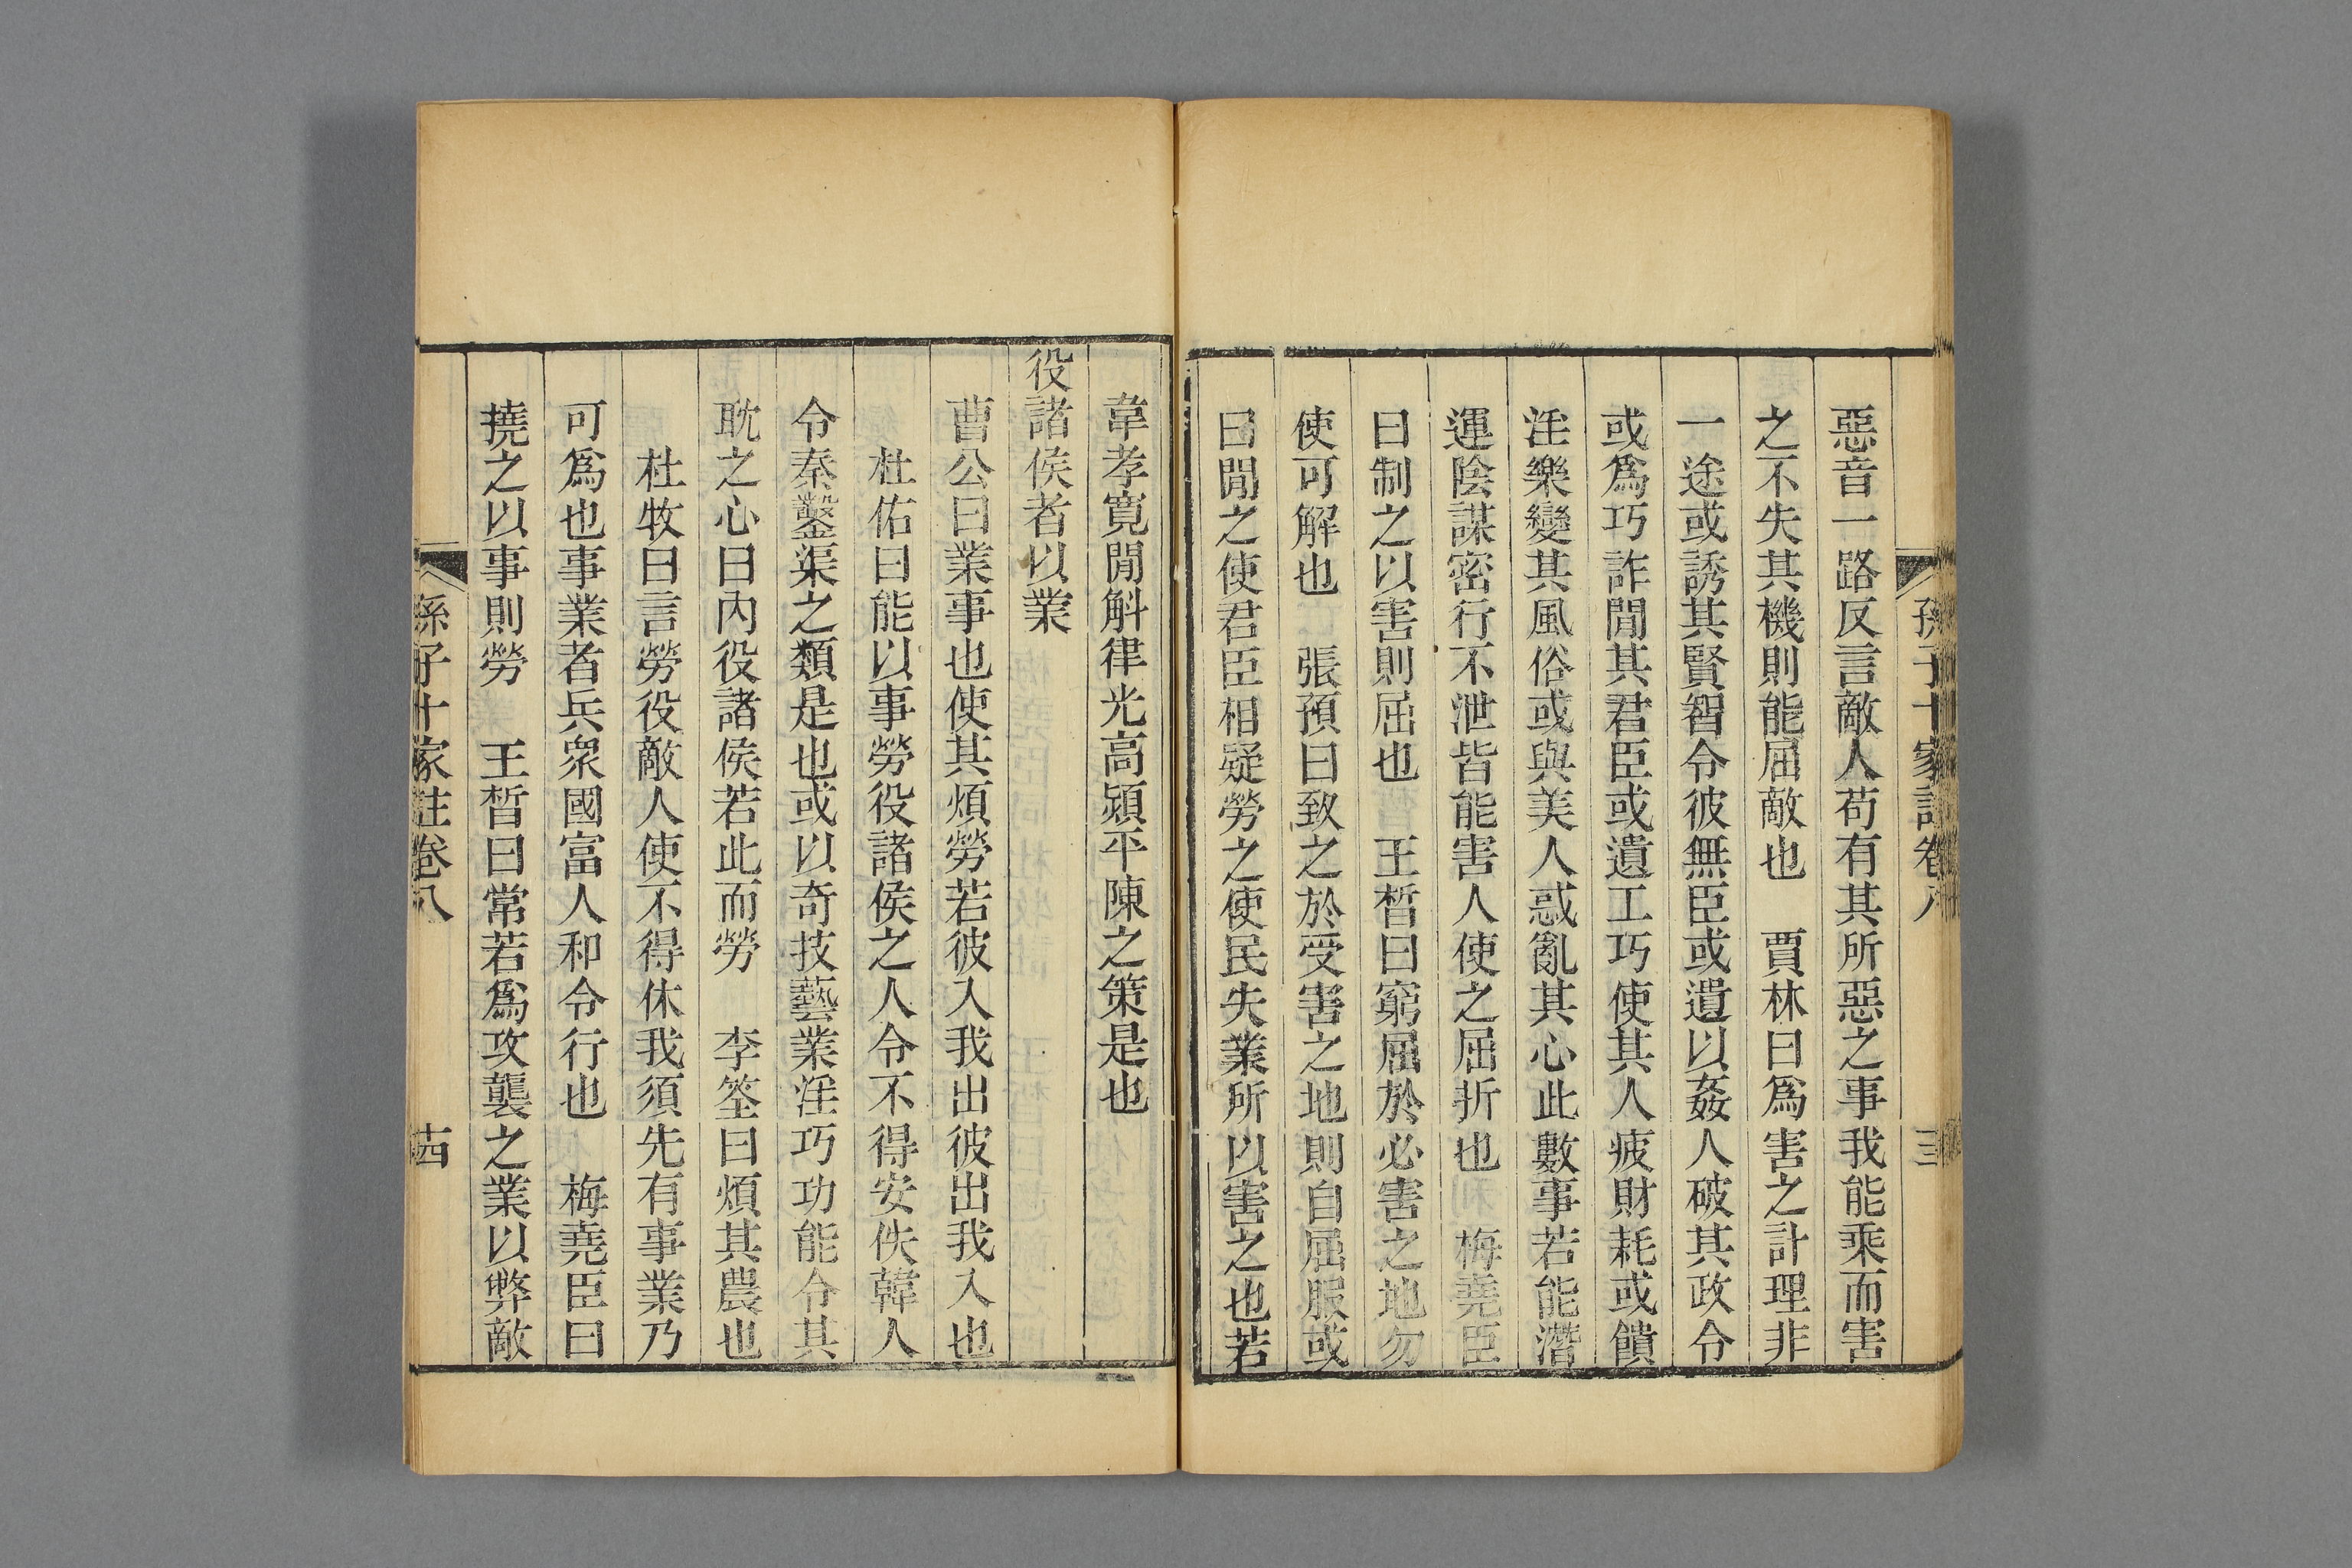 孫子十家註卷八 三
惡音一路反言敵人苟有其所惡之事我能乘而害
之不失其機則能屈敵也 賈林曰爲害之計理非
一途或誘其賢智令彼無臣或遺以姦人破其政令
或爲巧詐閒其君臣或遺工巧使其人疲財耗或饋
淫樂變其風俗或與美人惑亂其心此數事若能潛
運陰謀密行不泄皆能害人使之屈折也 梅堯臣
曰制之以害則屈也 王晳曰窮屈於必害之地勿
使可解也 張預曰致之於受害之地則自屈服或
曰閒之使君臣相疑勞之使民失業所以害之也若
韋孝寬閒斛律光高熲平陳之策是也
役諸侯者以業
曹公曰業事也使其煩勞若彼入我出彼出我入也
杜佑曰能以事勞役諸侯之人令不得安佚韓人
令秦鑿渠之類是也或以奇技藝業淫巧功能令其
耽之心曰內役諸侯若此而勞 李筌曰煩其農也
杜牧曰言勞役敵人使不得休我須先有事業乃
可爲也事業者兵衆國富人和令行也 梅堯臣曰
撓之以事則勞 王晳曰常若爲攻襲之業以弊敵
孫子十家註卷八 十四